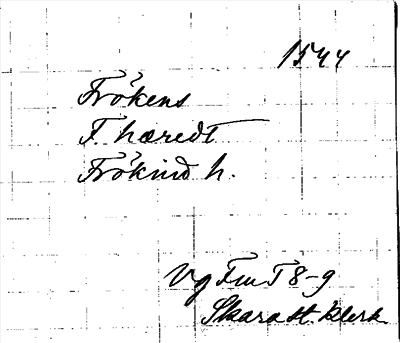 1544
Frökens
F. hæredt
Frökind h.
Vg FmT 8-9
Skara st. klerk